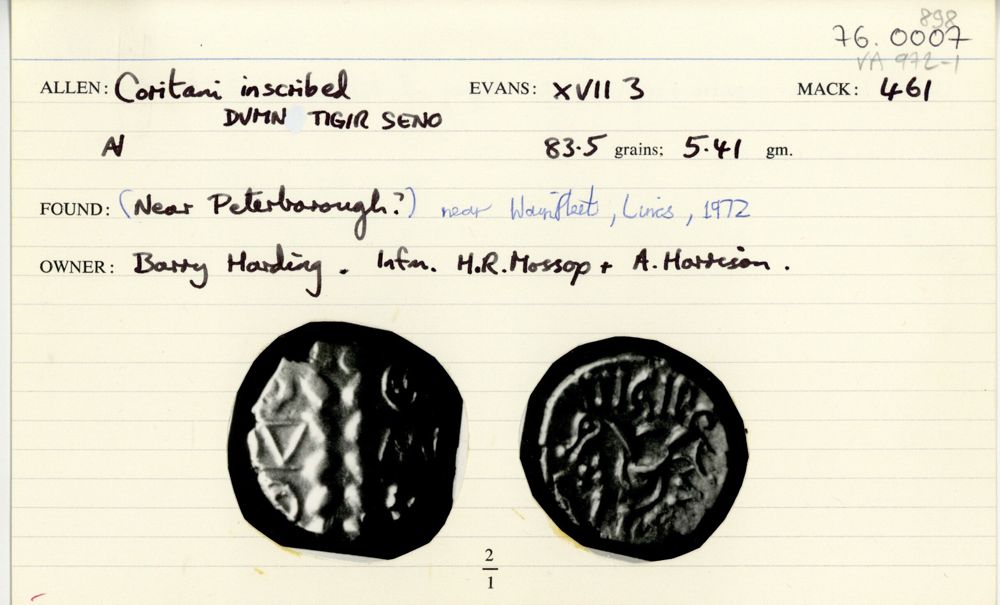 898
76.0007
VA 972-1
ALLEN: Coritani inscribed EVANS: XVII 3 MACK: 461
DVMN TIGIR SENO
AV 83.5 grains; 5.41 gm.
FOUND: (Near Peterborough?) near Wainfleet, Lincs, 1972
OWNER: Barry Harding. Infm. H.R. Mossop + A. Harrison.
2
1